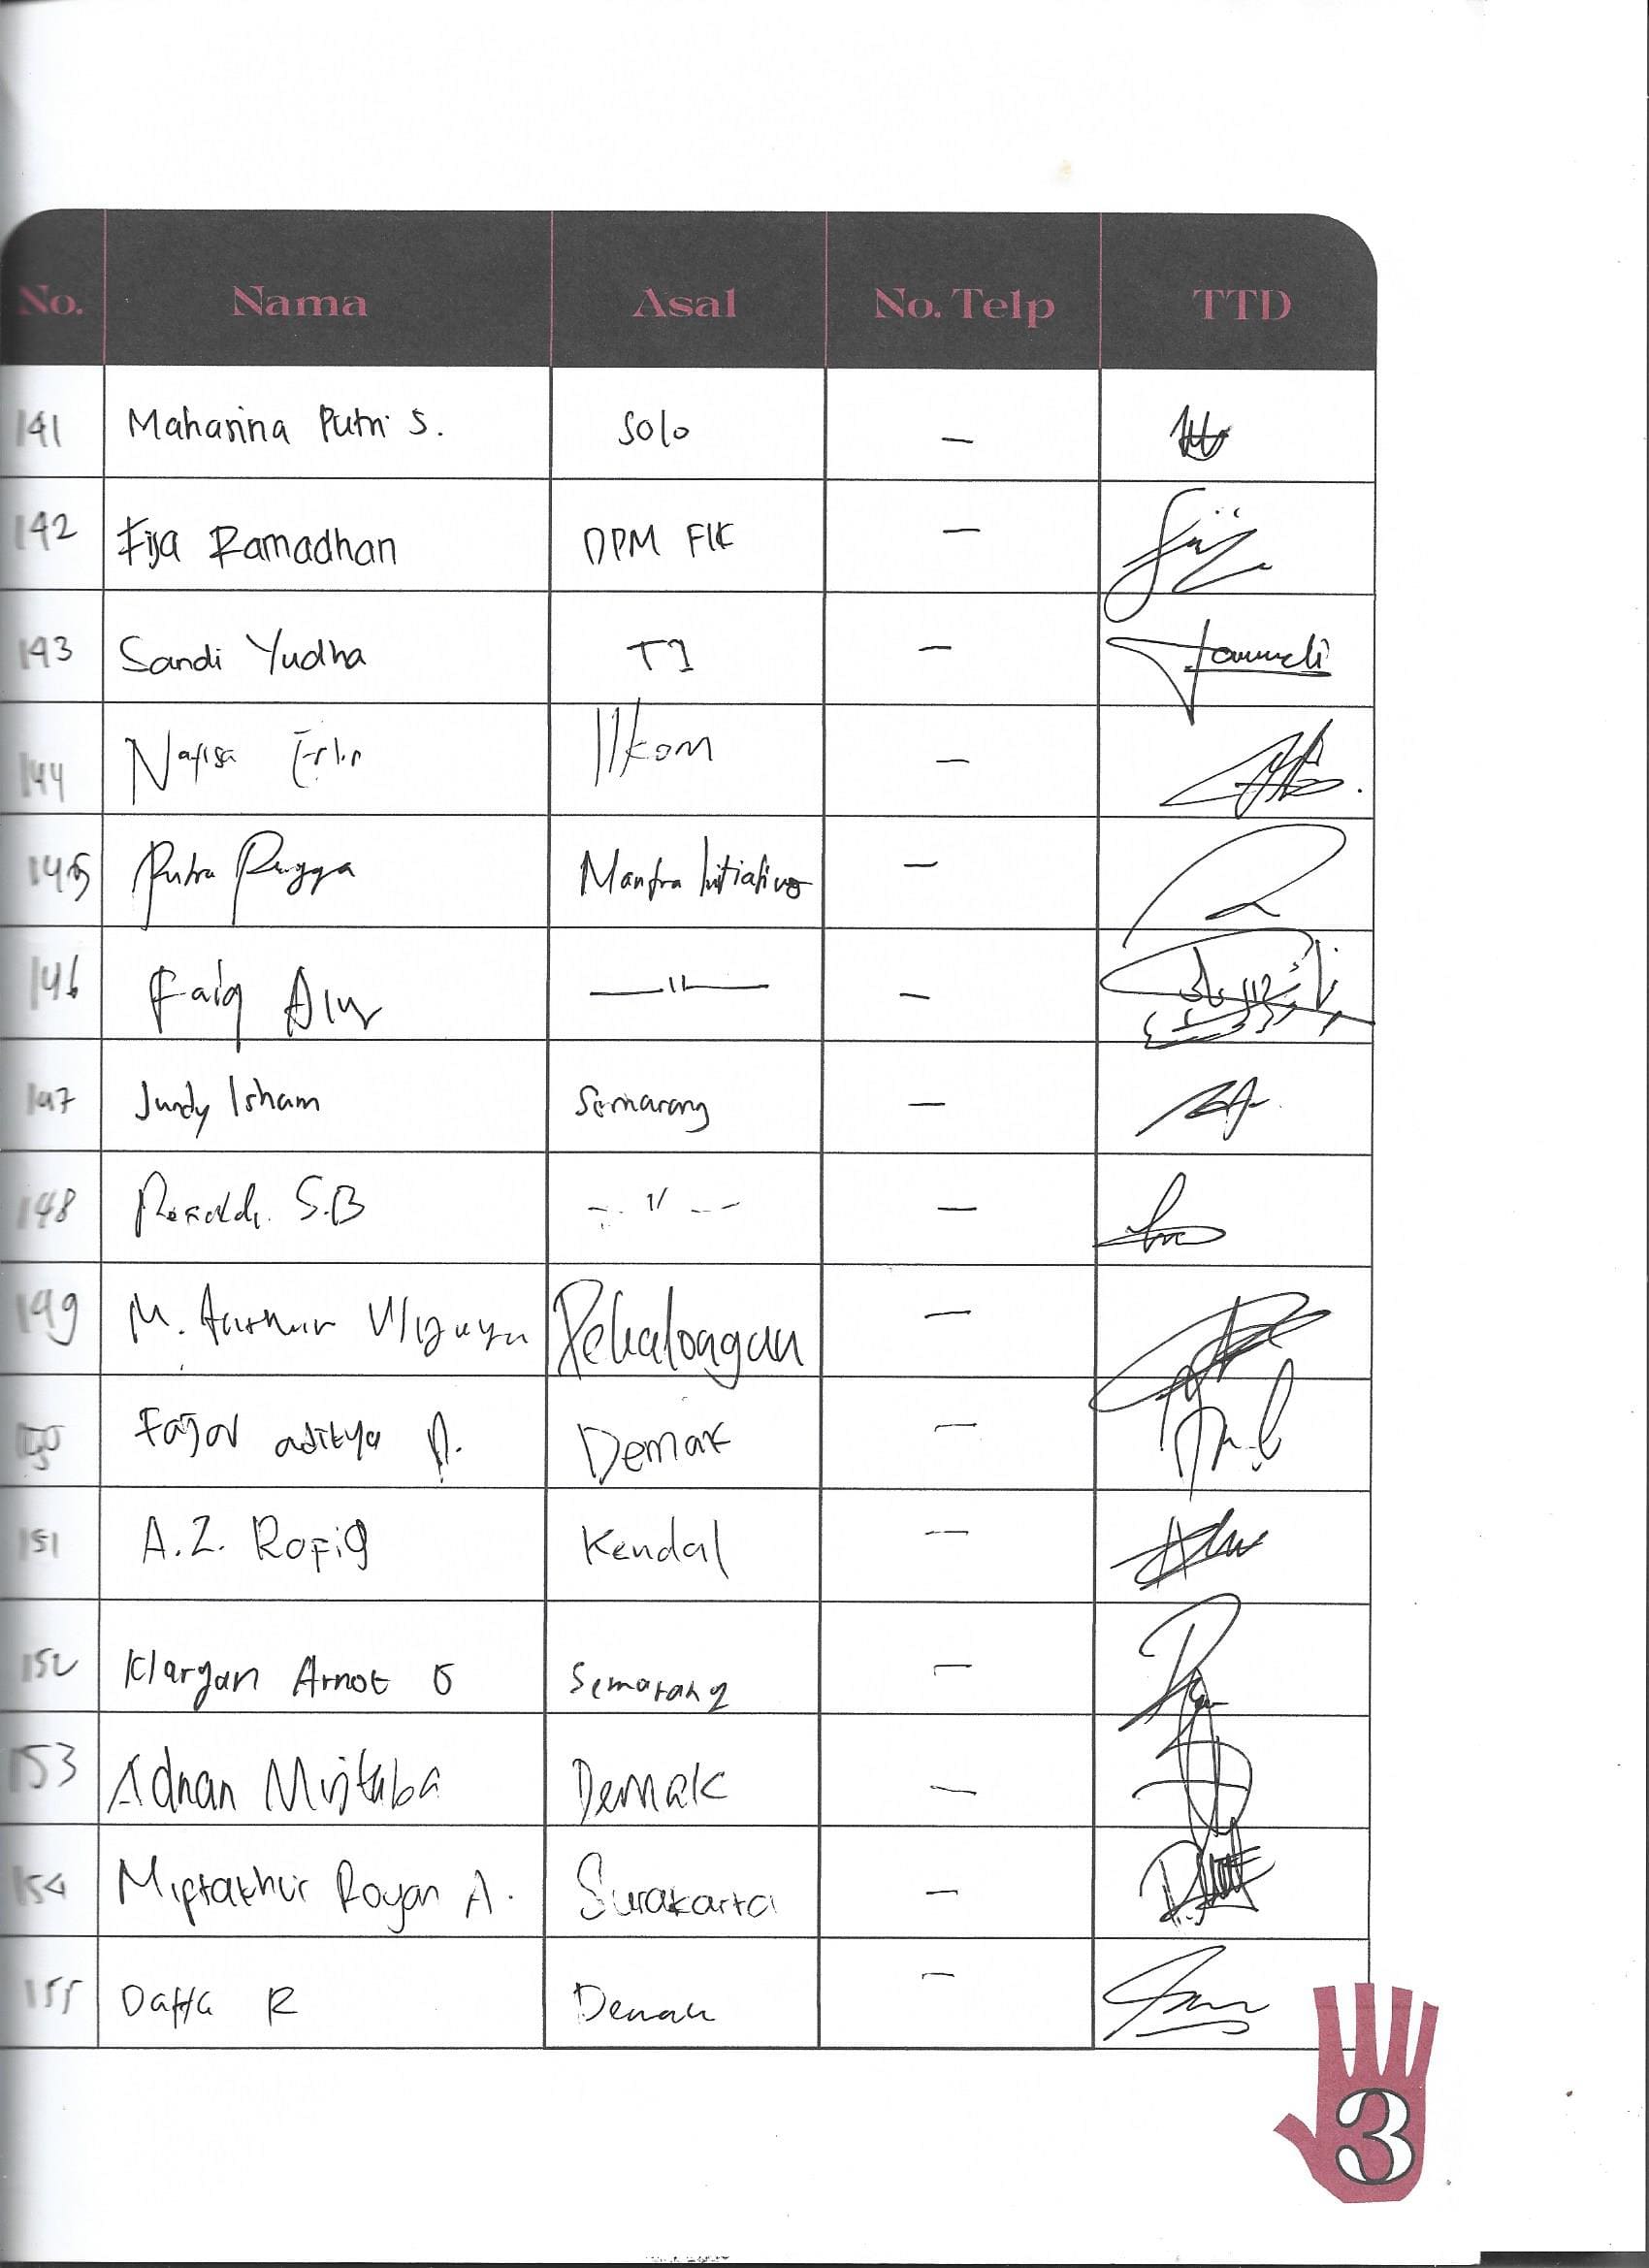 No. Nama Asal No. Telp TTD
141 Maharina Putri S. Solo —
142 Fija Ramadhan DPM FIK —
143 Sandi Yudha TI —
144 Nafisa Ilkom —
145 Putra Rangga Mantra Initiative —
146 Faiq — " — —
147 Jundy Isham Semarang —
148 S.B — " — —
149 M. Pekalongan —
150 Fajar aditya P. Demak —
151 A.Z. Rofiq Kendal —
152 Klaryan Arnot G Semarang —
153 Adnan Mujtaba Demak —
154 Miftakhur Royan A. Surakarta —
155 Daffa R Demak —
3